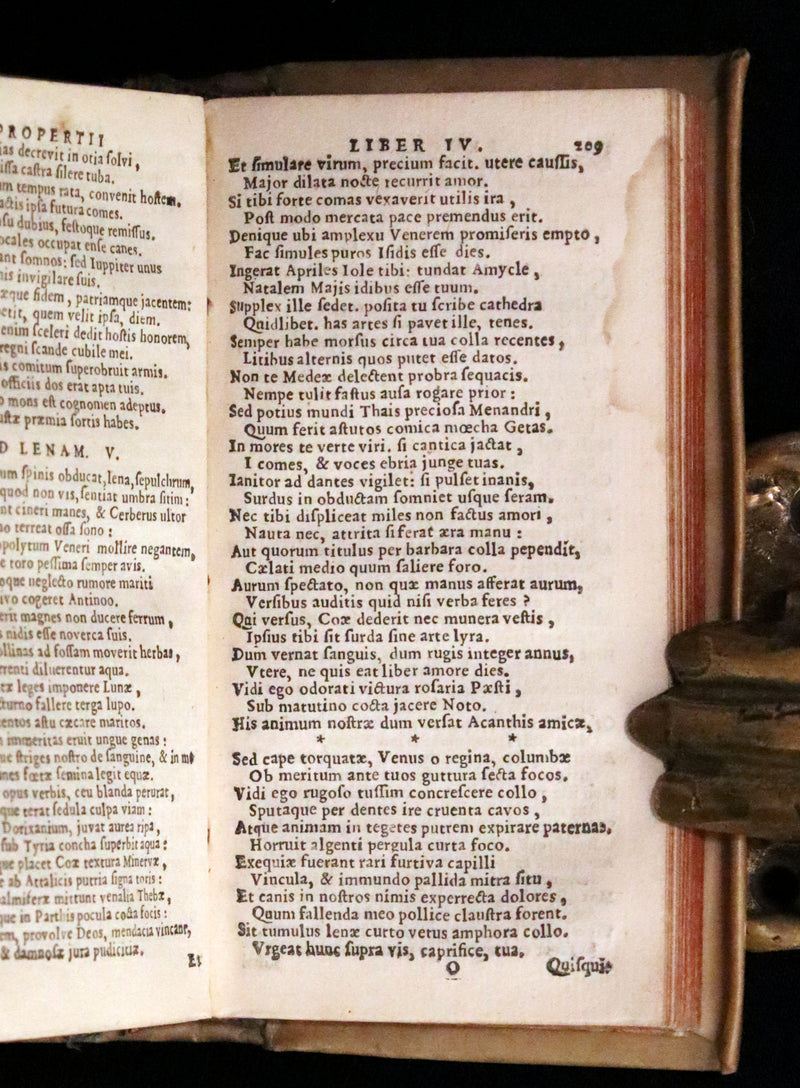 PROPERTII
decrevit in otia ſolvi,
caſtra ſilere tuba.
tempus rata, convenit hoſtem,
ipſa futura comes.
dubius, feſtoque remiſſus.
occupat enſe canes.
ſomnos: ſed Iuppiter unus
invigilare ſuis.
fidem, patriamque jacentem:
quem velit ipſa, diem.
enim ſceleri dedit hoſtis honorem,
regni ſcande cubile mei.
comitum ſuperobruit armis.
officiis dos erat apta tuis.
mons eſt cognomen adeptus,
præmia ſortis habes.
LENAM. V.
ſpinis obducat, lena, ſepulchrum,
quod non vis, ſentiat umbra ſitim:
cineri manes, & Cerberus ultor
terreat oſſa ſono:
Veneri mollire negantem,
toro peſſima ſemper avis.
neglecto rumore mariti
cogeret Antinoo.
magnes non ducere ferrum,
nidis eſſe noverca ſuis.
ad foſſam moverit herbas,
diluerentur aqua.
leges imponere Lunæ,
fallere terga lupo.
aſtu cæcare maritos,
immeritas eruit ungue genas:
ſtriges noſtro de ſanguine, & in me
fœtæ ſemina legit equæ.
opus verbis, ceu blanda perurat,
terat ſedula culpa viam:
Dorixanium, juvat aurea ripa,
ſub Tyria concha ſuperbit aqua:
placet Coæ textura Minervæ,
ab Attalicis putria ſigna toris:
mittunt venalia Thebæ,
in Parthis pocula cocta focis:
provolve Deos, mendacia vincant,
& damnoſæ jura pudicitiæ.
Et
LIBER IV. 209
Et ſimulare virum, precium facit. utere cauſſis,
Major dilata nocte recurrit amor.
Si tibi forte comas vexaverit utilis ira,
Poſt modo mercata pace premendus erit.
Denique ubi amplexu Venerem promiſeris empto,
Fac ſimules puros Iſidis eſſe dies.
Ingerat Apriles Iole tibi: tundat Amycle,
Natalem Majis idibus eſſe tuum.
Supplex ille ſedet. poſita tu ſcribe cathedra
Quidlibet. has artes ſi pavet ille, tenes.
Semper habe morſus circa tua colla recentes,
Litibus alternis quos putet eſſe datos.
Non te Medeæ delectent probra ſequacis.
Nempe tulit faſtus auſa rogare prior:
Sed potius mundi Thais precioſa Menandri,
Quum ferit aſtutos comica mœcha Getas.
In mores te verte viri. ſi cantica jactat,
I comes, & voces ebria junge tuas.
Ianitor ad dantes vigilet: ſi pulſet inanis,
Surdus in obductam ſomniet uſque ſeram.
Nec tibi diſpliceat miles non factus amori,
Nauta nec, attrita ſi ferat æra manu:
Aut quorum titulus per barbara colla pependit,
Cælati medio quum ſaliere foro.
Aurum ſpectato, non quæ manus afferat aurum,
Verſibus auditis quid niſi verba feres?
Qui verſus, Coæ dederit nec munera veſtis,
Ipſius tibi ſit ſurda ſine arte lyra.
Dum vernat ſanguis, dum rugis integer annus,
Vtere, ne quis eat liber amore dies.
Vidi ego odorati victura roſaria Pæſti,
Sub matutino cocta jacere Noto.
His animum noſtræ dum verſat Acanthis amicæ,
* * *
Sed cape torquatæ, Venus o regina, columbæ
Ob meritum ante tuos guttura ſecta focos.
Vidi ego rugoſo tuſſim concreſcere collo,
Sputaque per dentes ire cruenta cavos,
Atque animam in tegetes putrem expirare paternas.
Horruit algenti pergula curta foco.
Exequiæ fuerant rari furtiva capilli
Vincula, & immundo pallida mitra ſitu,
Et canis in noſtros nimis experrecta dolores,
Quum fallenda meo pollice clauſtra forent.
Sit tumulus lenæ curto vetus amphora collo.
Vrgeat hunc ſupra vis, caprifice, tua.
O Quiſquis